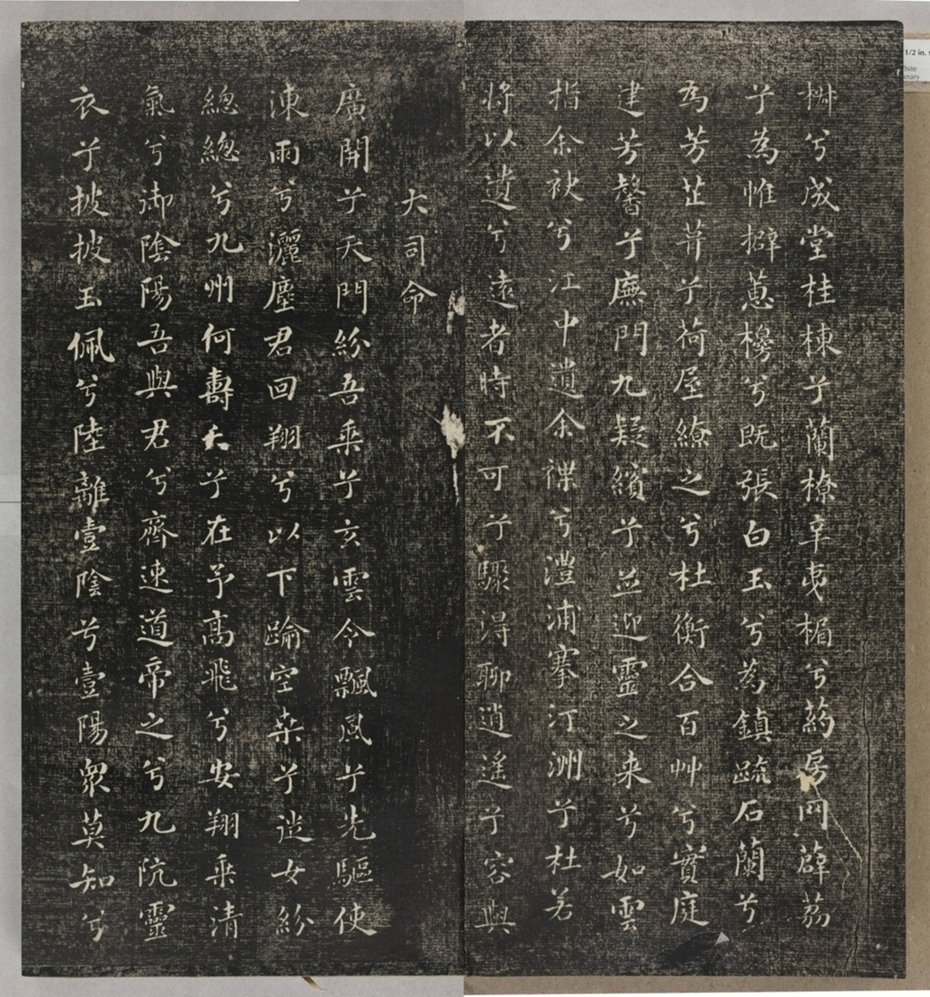 椒兮成堂桂棟兮蘭橑辛夷楣兮葯房罔薜荔
兮為帷擗蕙櫋兮既張白玉兮為鎮疏石蘭兮
為芳芷葺兮荷屋繚之兮杜衡合百艸兮實庭
建芳馨兮廡門九疑繽兮並迎靈之来兮如雲
捐余袂兮江中遺余褋兮澧浦搴汀洲兮杜若
將以遺兮遠者時不可兮驟得聊逍遙兮容與
大司命
廣開兮天門紛吾乘兮玄雲令飄風兮先驅使
涷雨兮灑塵君回翔兮以下踰空桑兮從女紛
總總兮九州何壽夭兮在予高飛兮安翔乘清
氣兮御陰陽吾與君兮齊速道帝之兮九阬靈
衣兮披披玉佩兮陸離壹陰兮壹陽衆莫知兮
1/2 in.